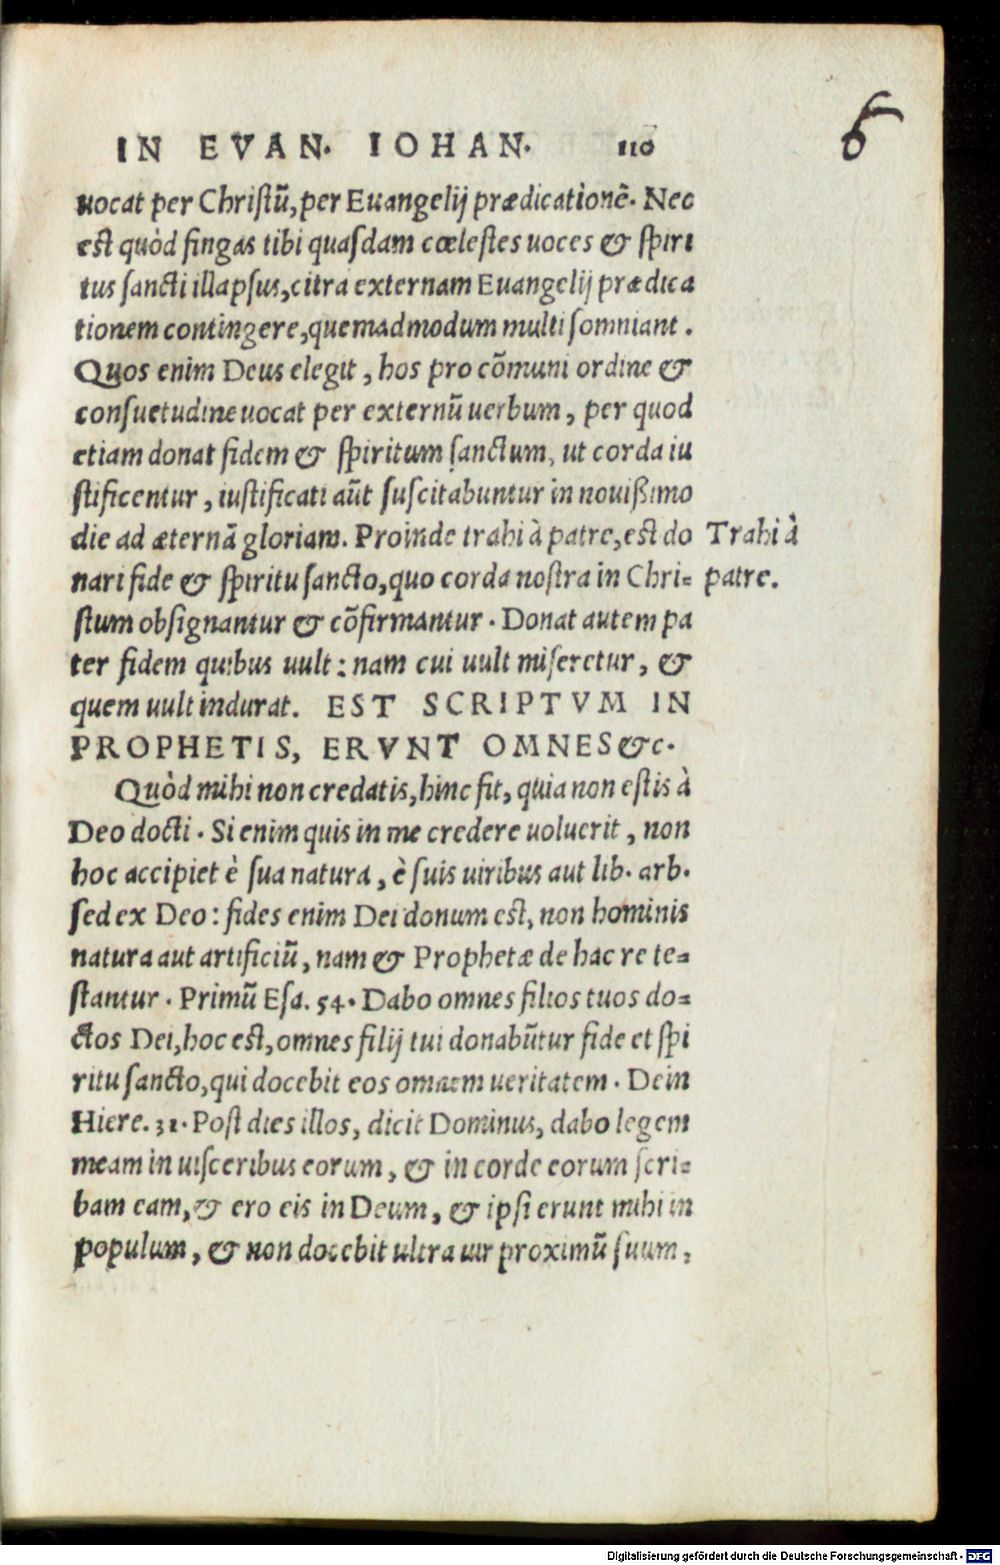 6
IN EVAN. IOHAN. 110
uocat per Christũ, per Euangelij prædicationẽ. Nec
est quòd fingas tibi quasdam cœlestes uoces & spiri
tus sancti illapsus, citra externam Euangelij prædica
tionem contingere, quemadmodum multi somniant.
Quos enim Deus elegit, hos pro cõmuni ordine &
consuetudine uocat per externũ uerbum, per quod
etiam donat fidem & spiritum sanctum, ut corda iu
stificentur, iustificati aũt suscitabuntur in nouißimo
die ad æternã gloriam. Proinde trahi à patre, est do
Trahi à
nari fide & spiritu sancto, quo corda nostra in Chri=
patre.
stum obsignantur & cõfirmantur. Donat autem pa
ter fidem quibus uult: nam cui uult miseretur, &
quem uult indurat. EST SCRIPTVM IN
PROPHETIS, ERVNT OMNES &c.
Quòd mihi non credatis, hinc fit, quia non estis à
Deo docti. Si enim quis in me credere uoluerit, non
hoc accipiet è sua natura, è suis uiribus aut lib. arb.
sed ex Deo: fides enim Dei donum est, non hominis
natura aut artificiũ, nam & Prophetæ de hac re te=
stantur. Primũ Esa. 54. Dabo omnes filios tuos do=
ctos Dei, hoc est, omnes filij tui donabũtur fide et spi
ritu sancto, qui docebit eos omnem ueritatem. Dein
Hiere. 31. Post dies illos, dicit Dominus, dabo legem
meam in uisceribus eorum, & in corde eorum scri=
bam eam, & ero eis in Deum, & ipsi erunt mihi in
populum, & non docebit ultra uir proximũ suum,
Digitalisierung gefördert durch die Deutsche Forschungsgemeinschaft - DFG